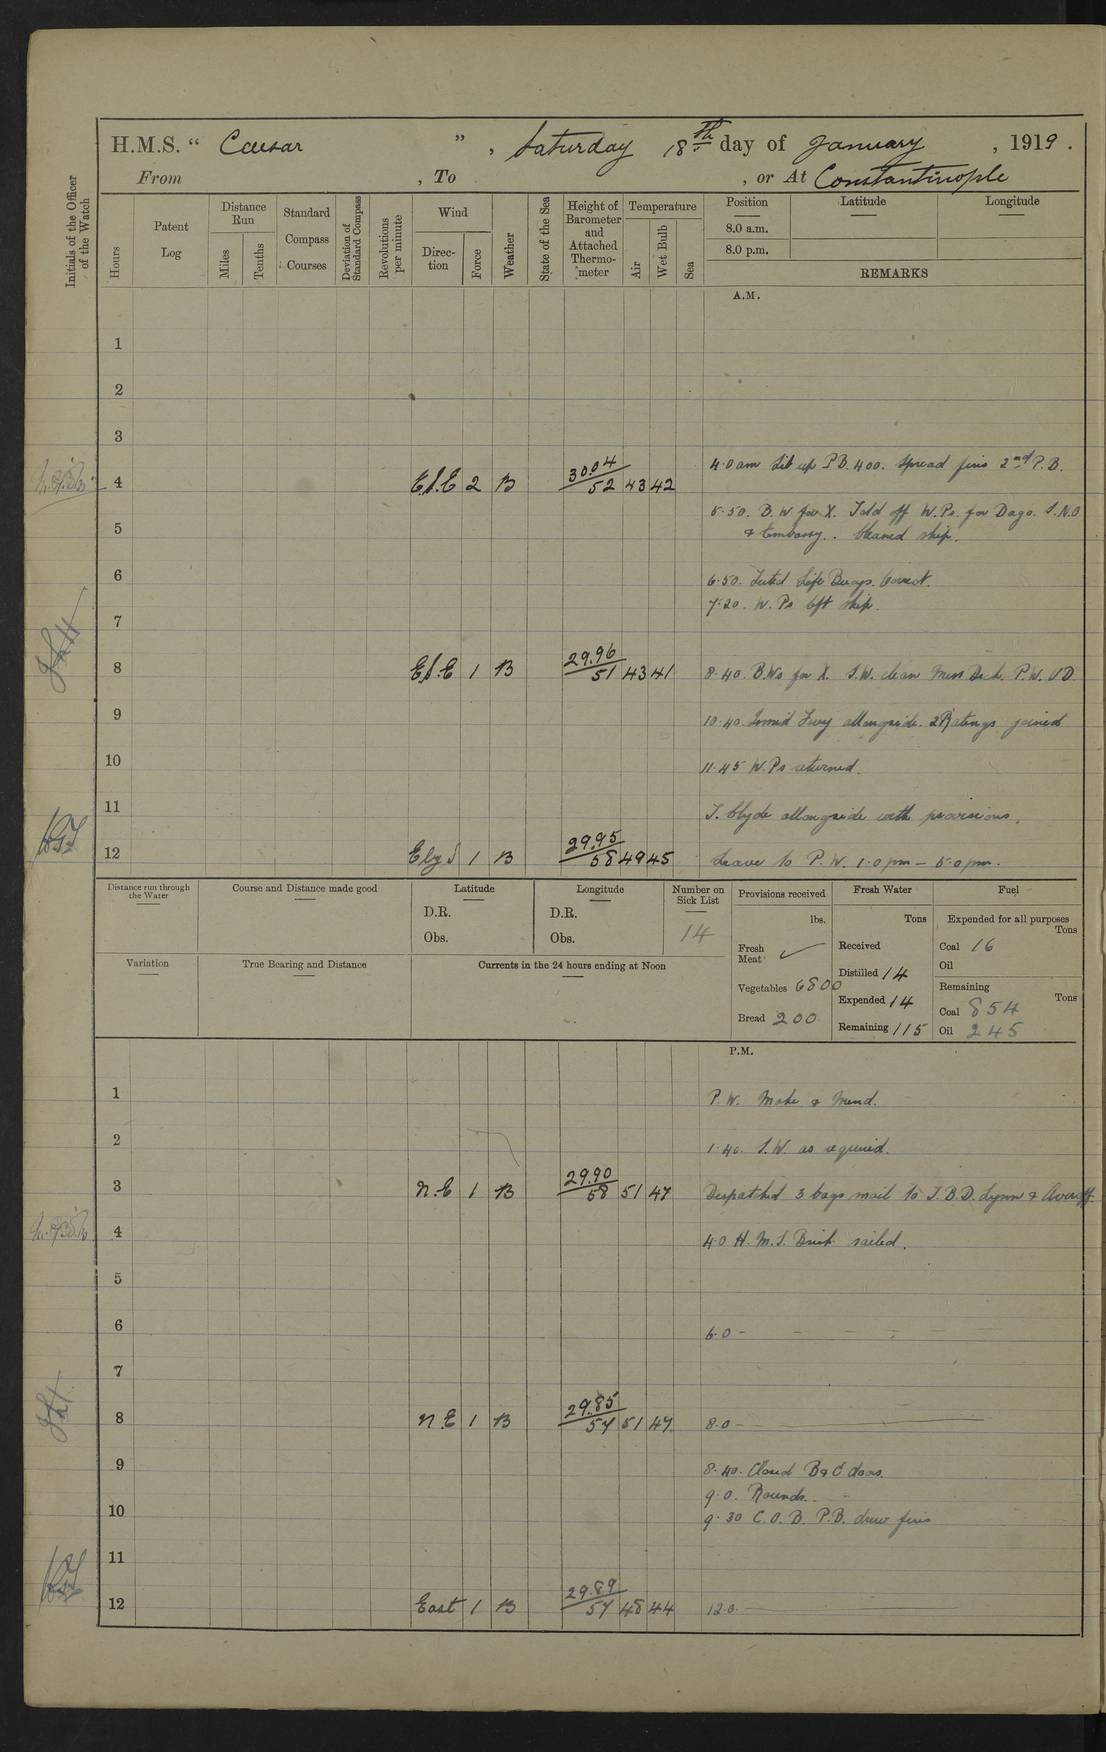 H.M.S. “ Caesar ” , Saturday 18th day of January , 1919 .
From , To , or At Constantinople
Initials of the Officer of the Watch
Hours
Patent Log
Distance Run
Miles
Tenths
Standard Compass Courses
Deviation of Standard Compass
Revolutions per minute
Wind
Direc-tion
Force
Weather
State of the Sea
Height of Barometer and Attached Thermo-meter
Temperature
Air
Wet Bulb
Sea
Position Latitude Longitude
8.0 a.m.
8.0 p.m.
REMARKS
A.M.
1
2
3
4.0 am Lit up P.B. 400. Spread fires 2nd P.B.
4 E.S.E 2 B 30.04 52 43 42
5.50. B.W for X. Told off W.Ps. for Dago. S.N.O
5 & Embassy. Cleaned ship.
6 6.50. Tested Life Buoys. Correct.
7.20. W.Ps left ship.
7
8 E.S.E 1 B 29.96 51 43 41 8.40. B.Ws for X. S.W. clean Mess Deck. P.W. UD
9 10.40. Ismid Ferry allongside. 2 Ratings joined
10 11.45 W.Ps returned.
11 T. Clyde allongside with provisions.
12 E by S 1 B 29.95 58 49 45 Leave to P.W. 1.0 pm – 5.0 pm.
Distance run through the Water
Course and Distance made good
Latitude
D.R.
Obs.
Longitude
D.R.
Obs.
Number on Sick List
14
Provisions received
lbs.
Fresh Meat ✓
Vegetables 6800
Bread 200
Fresh Water
Tons
Received
Distilled 14
Expended 14
Remaining 115
Fuel
Expended for all purposes
Tons
Coal 16
Oil
Remaining
Tons
Coal 854
Oil 245
Variation
True Bearing and Distance
Currents in the 24 hours ending at Noon
P.M.
1 P.W. Make & Mend.
2 1.40. S.W. as required.
3 N.E 1 B 29.90 58 51 47 Despatched 3 bags mail to T.B.D. Lynn & Averoff.
4 4.0 H.M.S. sailed.
5
6 6.0 –
7
8 N.E 1 B 29.85 57 51 47 8.0 –
9 8.40. Closed B & E doors.
9.0. Rounds.
10 9.30 C.O.B. P.B. drew fires
11
12 East 1 B 29.89 57 48 44 12.0.